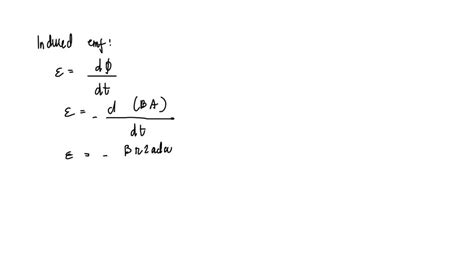 Induced emf:
ε = dϕ/dt
ε = - d (BA)/dt
ε = - Bπ2ada